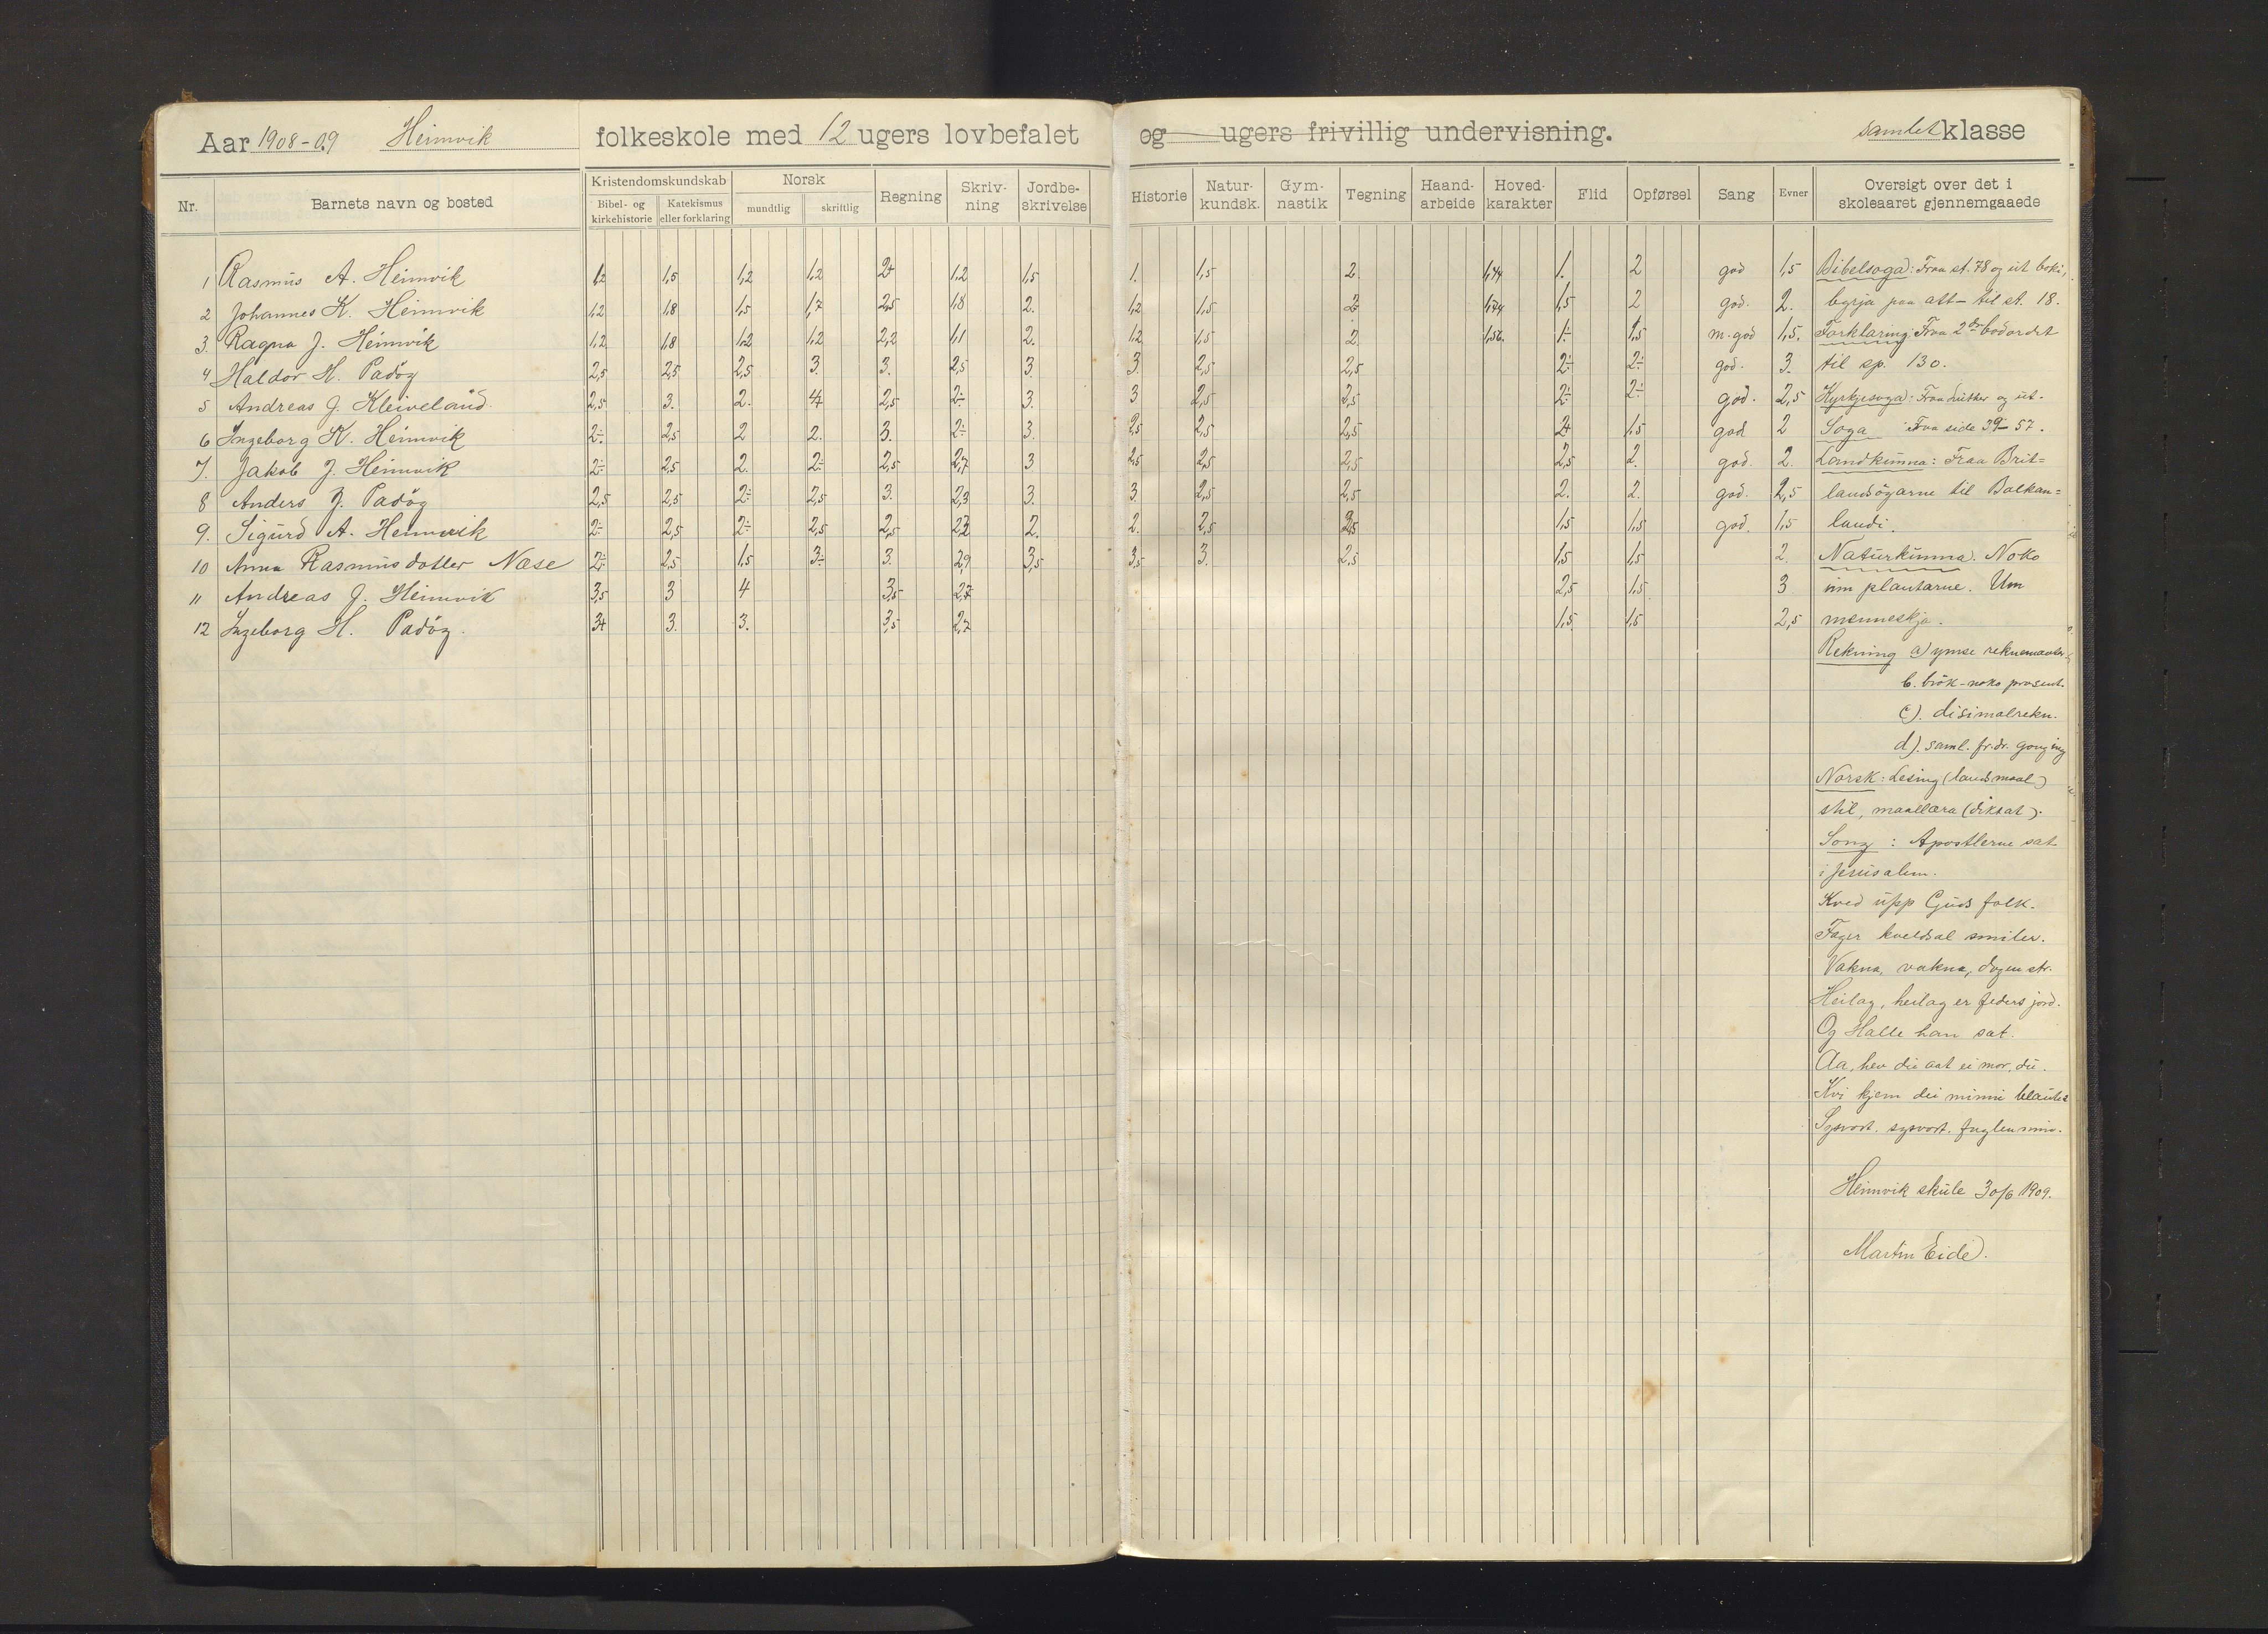 Aar 1908-09 Heimvik folkeskole med 12 ugers lovbefalet og ugers frivillig undervisning. samlet klasse
Nr. Barnets navn og bosted Kristendomskundskab Bibel- og kirkehistorie Katekismus eller forklaring Norsk mundtlig skriftlig Regning Skriv-ning Jordbe-skrivelse Historie Natur-kundsk. Gym-nastik Tegning Haand-arbeide Hoved-karakter Flid Opførsel Sang Evner Oversigt over det i skoleaaret gjennemgaaede
1 Rasmus A. Heimvik 1,2 1,5 1,2 1,2 2+ 1,2 1,5 1. 1,5 2 1,44 1. 2 god 1,5 Bibelsoga: Fraa st. 78 og ut boki,
2 Johannes K. Heimvik 1,2 1,8 1,5 1,7 2,5 1,8 2. 1,2 1,5 2 1,5 2 god. 2. byrja paa att - til st. 18.
3. Ragna J. Heimvik 1,2 1,8 1,2 1,2 2,2 1,1 2. 1,2 1,5 2 1,56. 1÷ 1,5 m. god 1,5. Forklaring: Fraa 2det bodordet
4 Haldor H. Padöy 2,5 2,5 2,5 3. 3. 2,5 3 3. 2,5 2,5 2÷ 2÷ god. 3. til sp. 130.
5 Andreas J. Kleiveland 2,5 3. 2. 4 2,5 2÷ 3. 3 2,5 2,5 2÷ 2÷ god. 2,5 Kyrkjesoga: Fraa Luther og ut.
6 Ingeborg K. Heimvik 2÷ 2,5 2 2. 3. 2÷ 3. 2,5 2,5 2,5 2+ 1,5 god 2 Soga Fraa side 39-57.
7. Jakob J. Heimvik 2÷ 2,5 2. 2÷ 2,5 2,7 3 2,5 2,5 2,5 2,5 2. god. 2. Landkunna: Fraa Brit=
8 Anders J. Padöy 2,5 2,5 2÷ 2,5 3. 2,3 3. 3. 2,5 2,5 2. 2. god. 2,5 landsöyarne til Balkan=
9. Sigurd A. Heimvik 2÷ 2,5 2÷ 2,5 2,5 2,2 2. 2. 2,5 2,5 1,5 1,5 god. 1,5 landi.
10 Anna Rasmusdotter Næse 2÷ 2,5 1,5 3÷ 3. 2,9 3,5 3,5 3. 2,5 1,5 1,5 2 Naturkunna. Noko
11 Andreas J. Heimvik 3,5 3 4 3,5 2,7 2,5 1,5 3 um plantarne. Um
12 Ingeborg H. Padöy. 3+ 3. 3. 3,5 2,7 1,5 1,5 2,5 menneskja.
Rekning a) ymse reknemaatar
b. brök - noko prosent.
c). disimalrekn.
d). saml. fr. dr. gonging
Norsk: Lesing (landsmaal)
stil, maallæra (diktat).
Song: Apostlerne sat
i Jerusalem.
Kved upp Guds folk.
Fager kveldsol smiler.
Vakna, vakna, dagen str.
Heilag, heilag er feders jord.
Og Halle han sat.
Aa, hev du aat ei mor, du.
Kvi kjem dei minni
fuglen min.
Heimvik skule 30/6 1909.
Martin Eide.